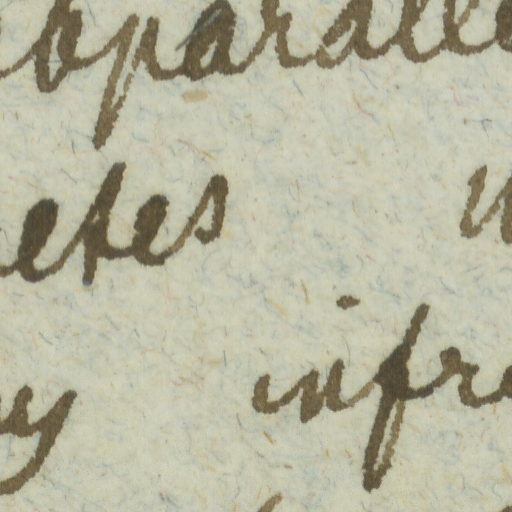 bparalle
etes
y infre